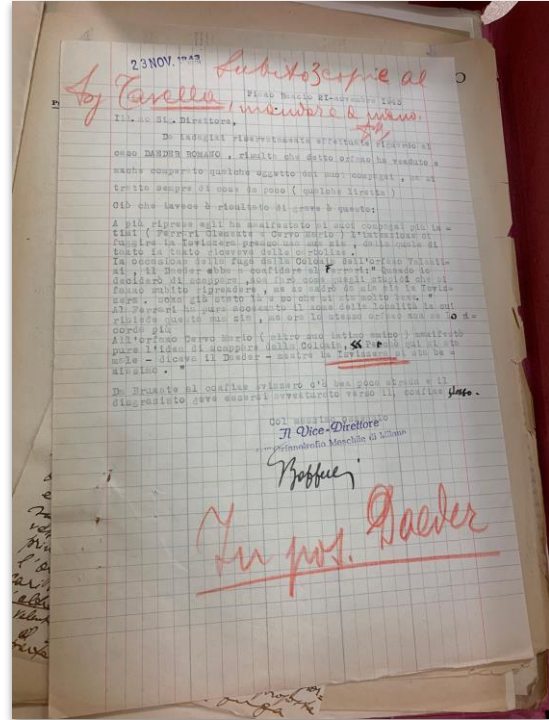 23 NOV. 1943
Subito 3 copie al
Sig Tavella, mandare a mano.
Piano Rancio 21 novembre 1943
Ill.mo Sig. Direttore,
Da indagini riservatamente effettuate riguardo al
caso DAEDER ROMANO , risulta che detto orfano ha venduto e
anche comperato qualche oggetto dai suoi compagni , ma si
tratta sempre di cose da poco ( qualche liretta )
Ciò che invece è risultato di grave è questo:
A più riprese egli ha manifestato ai suoi compagni più in =
timi ( Ferrari Clemente e Cervo Mario ) l'intenzione di
fuggire in Isvizzera presso una sua zia , dalla quale di
tanto in tanto riceveva delle cartoline.
In occasione della fuga dalla Colonia dell'orfano
il Daeder ebbe a confidare al Ferrari:" Quando io
deciderò di scappare ,non farò come quegli stupidi che si
fanno subito riprendere , me ne andrò da mia zia in Isviz=
zera , dove già stato e so che si sta molto bene. "
Al Ferrari ha pure accennato il nome della località in cui
risiede questa sua zia , ma ora lo stesso orfano non se lo ri=
corda più
All'orfano Cervo Mario ( altro suo intimo amico ) manifestò
pure l'idea di scappare dalla Colonia, " Perchè qui si sta
male - diceva il Daeder - mentre in Isvizzera si sta be =
nissimo . "
Da Brunate al confine svizzero c'è ben poca strada e il
disgraziato deve essersi avventurato verso il confine stesso.
Col massimo ossequio
Il Vice-Direttore
Orfanotrofio Maschile di Milano
In pos. Daeder